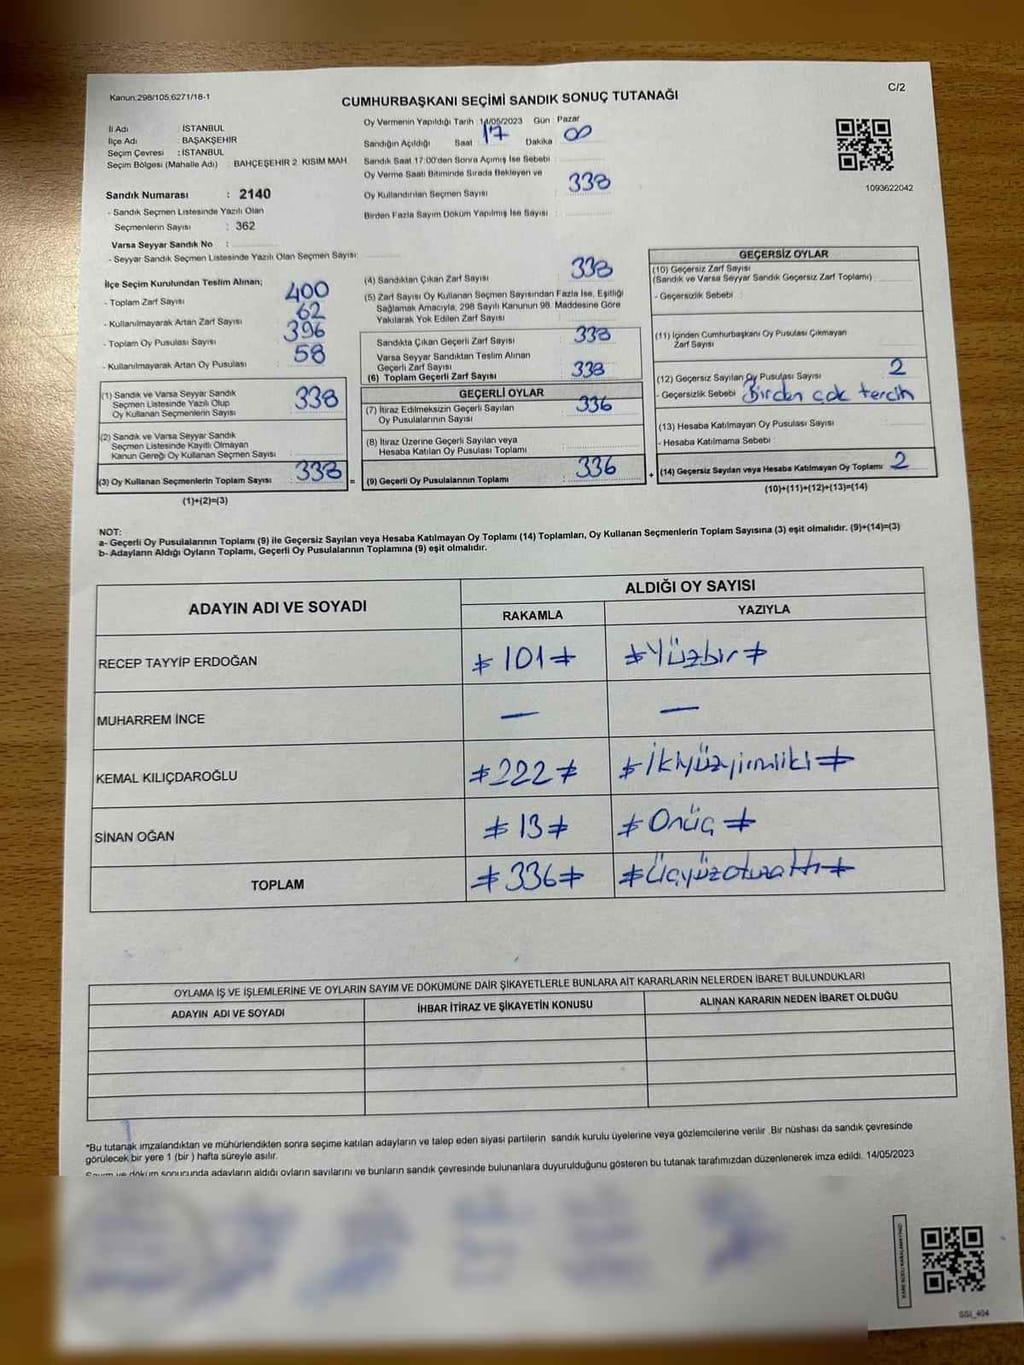 Kanun:298/105,6271/18-1
C/2
CUMHURBAŞKANI SEÇİMİ SANDIK SONUÇ TUTANAĞI
İl Adı : İSTANBUL
İlçe Adı : BAŞAKŞEHİR
Seçim Çevresi : İSTANBUL
Seçim Bölgesi (Mahalle Adı) : BAHÇEŞEHİR 2. KISIM MAH.
Sandık Numarası : 2140
- Sandık Seçmen Listesinde Yazılı Olan
Seçmenlerin Sayısı : 362
Varsa Seyyar Sandık No :
- Seyyar Sandık Seçmen Listesinde Yazılı Olan Seçmen Sayısı:
Oy Vermenin Yapıldığı Tarih : 14/05/2023 Gün : Pazar
Sandığın Açıldığı Saat 17 Dakika 00
Sandık Saat 17:00'den Sonra Açımış İse Sebebi
Oy Verme Saati Bitiminde Sırada Bekleyen ve
Oy Kullandırılan Seçmen Sayısı 338
Birden Fazla Sayım Döküm Yapılmış İse Sayısı :
1093622042
İlçe Seçim Kurulundan Teslim Alınan;
- Toplam Zarf Sayısı 400
- Kullanılmayarak Artan Zarf Sayısı 62
- Toplam Oy Pusulası Sayısı 396
- Kullanılmayarak Artan Oy Pusulası 58
(1) Sandık ve Varsa Seyyar Sandık
Seçmen Listesinde Yazılı Olup
Oy Kullanan Seçmenlerin Sayısı 338
(2) Sandık ve Varsa Seyyar Sandık
Seçmen Listesinde Kayıtlı Olmayan
Kanun Gereği Oy Kullanan Seçmen Sayısı
(3) Oy Kullanan Seçmenlerin Toplam Sayısı 338 =
(1)+(2)=(3)
(4) Sandıktan Çıkan Zarf Sayısı 338
(5) Zarf Sayısı Oy Kullanan Seçmen Sayısından Fazla İse, Eşitliği
Sağlamak Amacıyla, 298 Sayılı Kanunun 98. Maddesine Göre
Yakılarak Yok Edilen Zarf Sayısı
Sandıkta Çıkan Geçerli Zarf Sayısı 338
Varsa Seyyar Sandıktan Teslim Alınan
Geçerli Zarf Sayısı
(6) Toplam Geçerli Zarf Sayısı 338
GEÇERLİ OYLAR
(7) İtiraz Edilmeksizin Geçerli Sayılan
Oy Pusulalarının Sayısı 336
(8) İtiraz Üzerine Geçerli Sayılan veya
Hesaba Katılan Oy Pusulası Toplamı
(9) Geçerli Oy Pusulalarının Toplamı 336 +
GEÇERSİZ OYLAR
(10) Geçersiz Zarf Sayısı
(Sandık ve Varsa Seyyar Sandık Geçersiz Zarf Toplamı)
- Geçersizlik Sebebi :
(11) İçinden Cumhurbaşkanı Oy Pusulası Çıkmayan
Zarf Sayısı
(12) Geçersiz Sayılan Oy Pusulası Sayısı 2
- Geçersizlik Sebebi Birden çok tercih
(13) Hesaba Katılmayan Oy Pusulası Sayısı
- Hesaba Katılmama Sebebi :
(14) Geçersiz Sayılan veya Hesaba Katılmayan Oy Toplamı 2
(10)+(11)+(12)+(13)=(14)
NOT:
a- Geçerli Oy Pusulalarının Toplamı (9) ile Geçersiz Sayılan veya Hesaba Katılmayan Oy Toplamı (14) Toplamları, Oy Kullanan Seçmenlerin Toplam Sayısına (3) eşit olmalıdır. (9)+(14)=(3)
b- Adayların Aldığı Oyların Toplamı, Geçerli Oy Pusulalarının Toplamına (9) eşit olmalıdır.
ADAYIN ADI VE SOYADI
ALDIĞI OY SAYISI
RAKAMLA YAZIYLA
RECEP TAYYİP ERDOĞAN ≠101≠ ≠Yüzbir≠
MUHARREM İNCE — —
KEMAL KILIÇDAROĞLU ≠222≠ ≠İkiyüzyirmiiki≠
SİNAN OĞAN ≠13≠ ≠Onüç≠
TOPLAM ≠336≠ ≠Üçyüzotuzaltı≠
OYLAMA İŞ VE İŞLEMLERİNE VE OYLARIN SAYIM VE DÖKÜMÜNE DAİR ŞİKAYETLERLE BUNLARA AİT KARARLARIN NELERDEN İBARET BULUNDUKLARI
ADAYIN ADI VE SOYADI İHBAR İTİRAZ VE ŞİKAYETİN KONUSU ALINAN KARARIN NEDEN İBARET OLDUĞU
*Bu tutanak imzalandıktan ve mühürlendikten sonra seçime katılan adayların ve talep eden siyasi partilerin sandık kurulu üyelerine veya gözlemcilerine verilir .Bir nüshası da sandık çevresinde
görülecek bir yere 1 (bir ) hafta süreyle asılır.
Sayım ve döküm sonucunda adayların aldığı oyların sayılarını ve bunların sandık çevresinde bulunanlara duyurulduğunu gösteren bu tutanak tarafımızdan düzenlenerek imza edildi. 14/05/2023